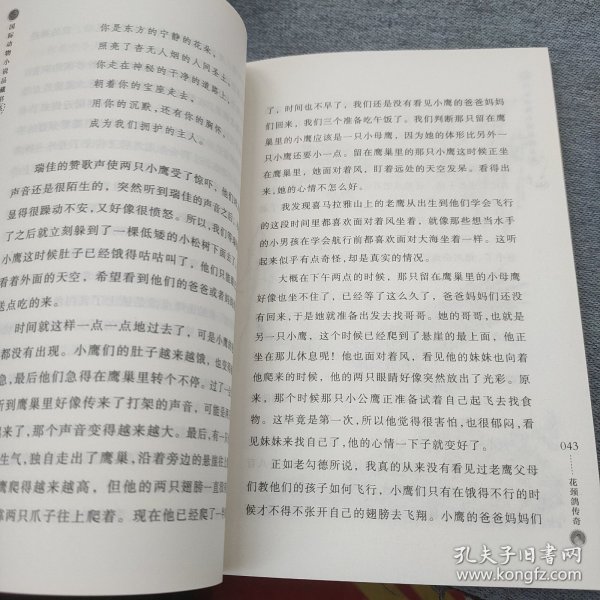 国际动物小说品藏书
你是东方的宁静的花朵，
照亮了杳无人烟的人间圣土，
你走在神秘的干净的道路上，
朝着你的宝座走去，
用你的沉默，还有你的胸怀，
成为我们拥护的主人。
瑞佳的赞歌声使两只小鹰受了惊吓，他们
声音还是很陌生的，突然听到瑞佳的声音之后，
显得很躁动不安，又好像很愤怒。所以，我们
了之后就立刻躲到了一棵低矮的小松树下面去了
小鹰这时候肚子已经饿得咕咕叫了，他们只能
看着外面的天空，希望看到他们的爸爸或者
送点吃的来。
时间就这样一点一点地过去了，可是小鹰的
都没有出现。小鹰们的肚子越来越饿，也变
急，最后他们急得在鹰巢里转个不停。过了一
听到鹰巢里好像传来了打架的声音，可能是
来了，那个声音变得越来越大。最后，有一只
生气，独自走出了鹰巢，沿着旁边的悬崖往上
鹰爬得越来越高，但他的两只翅膀一直
两只爪子往上爬着。现在他已经爬了一
了，时间也不早了，我们还是没有看见小鹰的爸爸妈妈
们回来，我们三个准备吃午饭了。我们判断那只留在鹰
巢里的小鹰应该是一只小母鹰，因为她的体形比另外一
只小鹰还要小一点。留在鹰巢里的那只小鹰这时候正坐
在鹰巢里，她面对着风，盯着远处的天空发呆。看得出
来，她的心情不怎么好。
我发现喜马拉雅山上的老鹰从出生到他们学会飞行
的这段时间里都喜欢面对着风坐着，就像那些想当水手
的小男孩在学会航行前都喜欢面对大海坐着一样。这听
起来似乎有点奇怪，却是真实的情况。
大概在下午两点的时候，那只留在鹰巢里的小母鹰
好像也坐不住了，已经等了这么久了，爸爸妈妈们还没
有回来，于是她就准备出发去找哥哥。她的哥哥，也就是
另一只小鹰，这个时候已经爬到了悬崖的最上面，他正
坐在那儿休息呢！他也面对着风，看见他的妹妹也向着
他爬来的时候，他的两只眼睛好像突然放出了光彩。原
来，那个时候那只小公鹰正准备试着自己起飞去找食
物。这毕竟是第一次，所以他觉得很害怕，也很郁闷，看
见妹妹来找自己了，他的心情一下子就变好了。
正如老勾德所说，我真的从来没有看见过老鹰父母
们教他们的孩子如何飞行，小鹰们只有在饿得不行的时
候才不得不张开自己的翅膀去飞翔。小鹰的爸爸妈妈们
043
花颈鸽传奇
孔夫子旧书网
www.kongfz.com